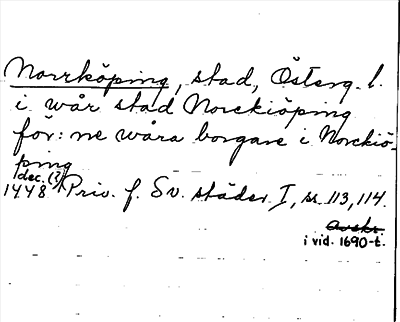 Norrköping, stad, Österg. l.
i wår stad Norckiöping
för:ne wåra borgare i Norckiö-
ping
dec. (?)
1448 Priv. f. Sv. städer I, ss. 113, 114.
Avskr.
i vid. 1690-t.